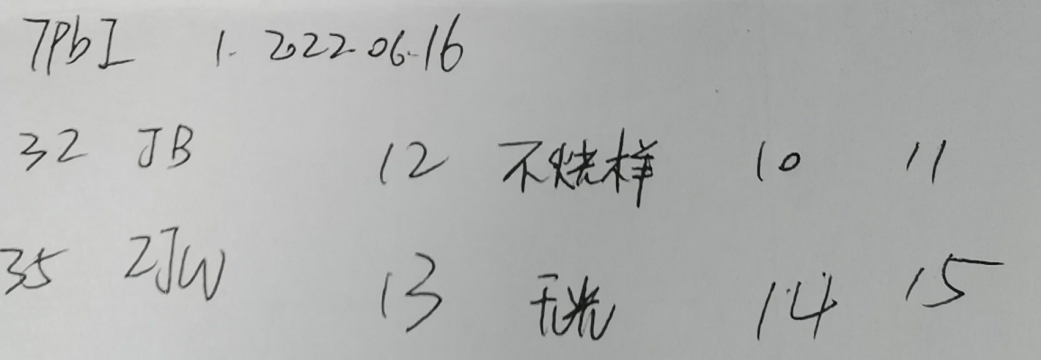 TPbI 1. 2022.06.16
32 JB 12 不烧样 10 11
35 ZJW 13 无光 14 15